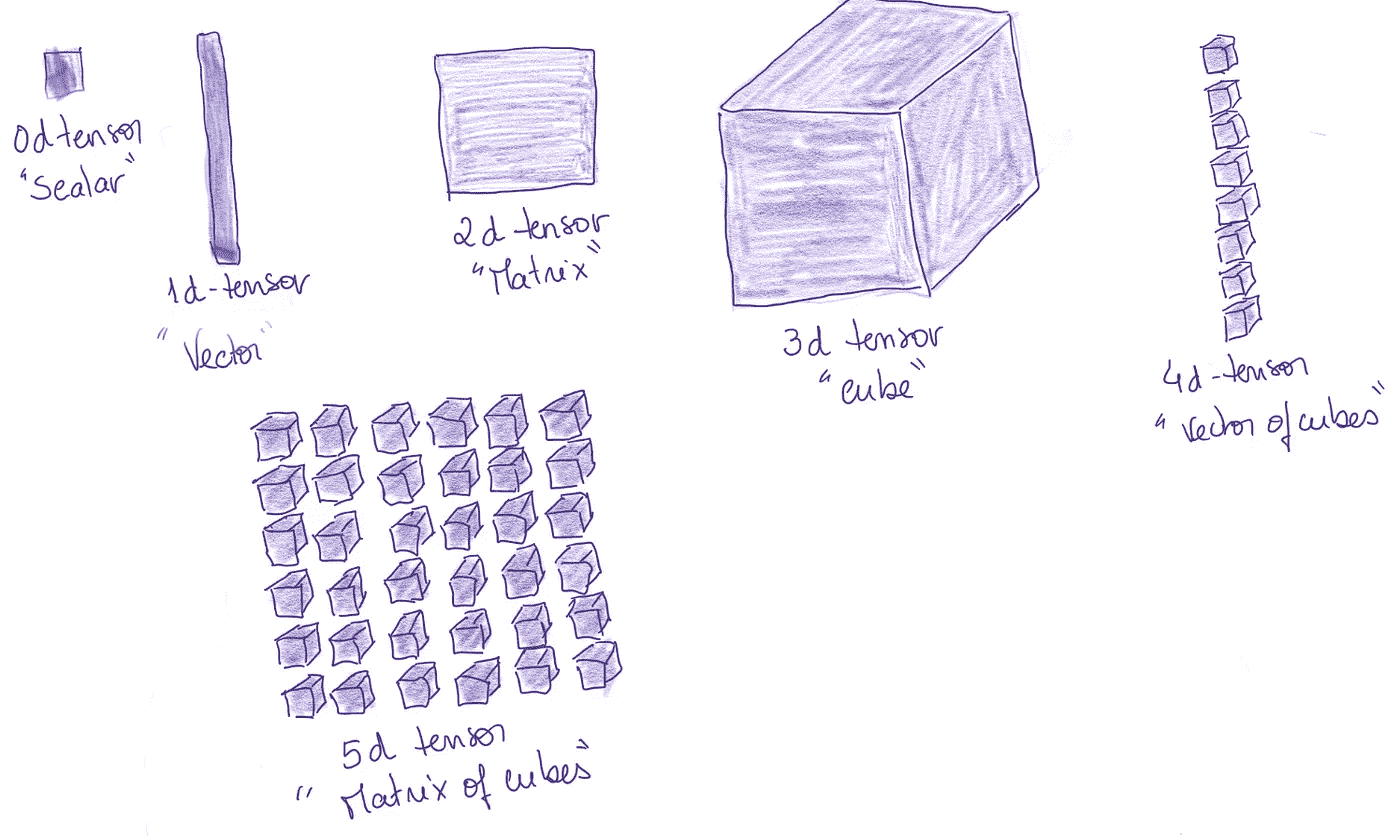 0d tensor
"Scalar"
1d-tensor
"Vector"
2d tensor
"Matrix"
3d tensor
"cube"
4d-tensor
"vector of cubes"
5d tensor
"Matrix of cubes"